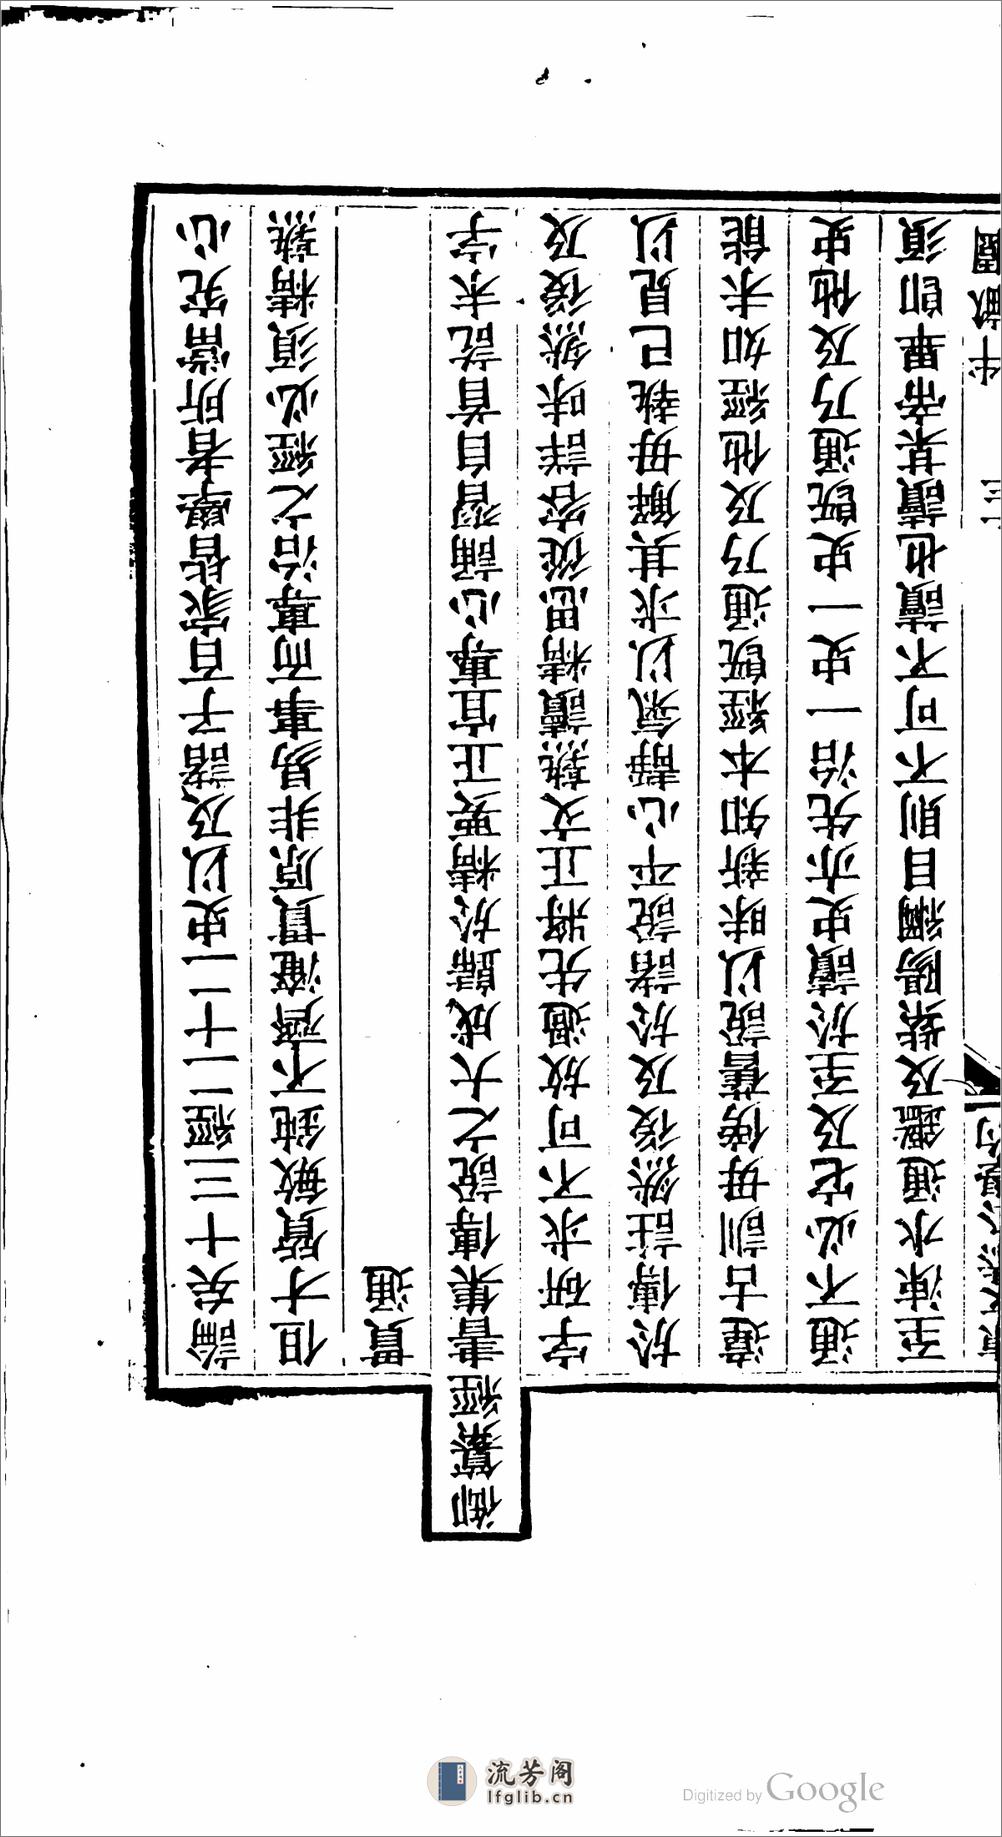 論矣十三經二十一史以及諸子百家皆學者所當究心
但才質敏鈍不齊淹貫原非易事而專治之經必須精熟
貫通
御纂經書集傳說之大成歸於精要正宜專心誦習自首訖末字
字研求不可放過先將正文熟讀精思從容詳味然後及
於傳註然後及於諸說平心靜氣以求其解毋執己見以
違古訓毋傍舊說以昧新知本經既通乃及他經如未能
通不必它及至於讀史亦先治一史一史既通乃及他史
至涑水通鑑及紫陽綱目則不可不讀也讀某帝畢即須
三 半畝園
流芳阁
lfglib.cn
Digitized by Google